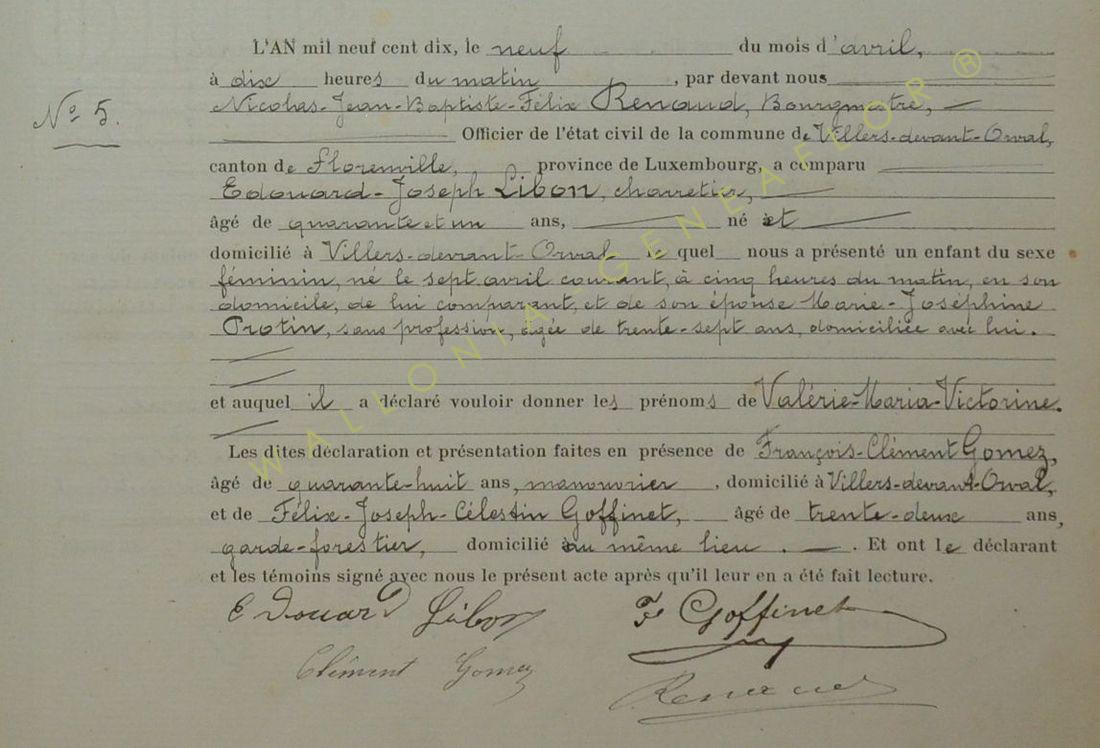 L'AN mil neuf cent dix, le neuf du mois d'avril,
à dix heures du matin, par devant nous
Nicolas-Jean-Baptiste-Félix Renaud, Bourgmestre,
N° 5.
Officier de l'état civil de la commune de Villers-devant-Orval,
canton de Florenville, province de Luxembourg, a comparu
Edouard-Joseph Libon, charretier,
âgé de quarante et un ans, né et
domicilié à Villers-devant-Orval lequel nous a présenté un enfant du sexe
féminin, né le sept avril courant, à cinq heures du matin, en son
domicile, de lui comparant, et de son épouse Marie-Joséphine
Protin, sans profession, âgée de trente-sept ans, domiciliée avec lui.
et auquel il a déclaré vouloir donner les prénoms de Valérie-Maria-Victorine.
Les dites déclaration et présentation faites en présence de François-Clément Gomez,
âgé de quarante-huit ans, manouvrier, domicilié à Villers-devant-Orval,
et de Félix-Joseph-Célestin Goffinet, âgé de trente-deux ans,
garde-forestier, domicilié au même lieu. Et ont le déclarant
et les témoins signé avec nous le présent acte après qu'il leur en a été fait lecture.
Edouard Libon F Goffinet
Clément Gomez Renaud
WALLONIA - GENEAFLOR ®